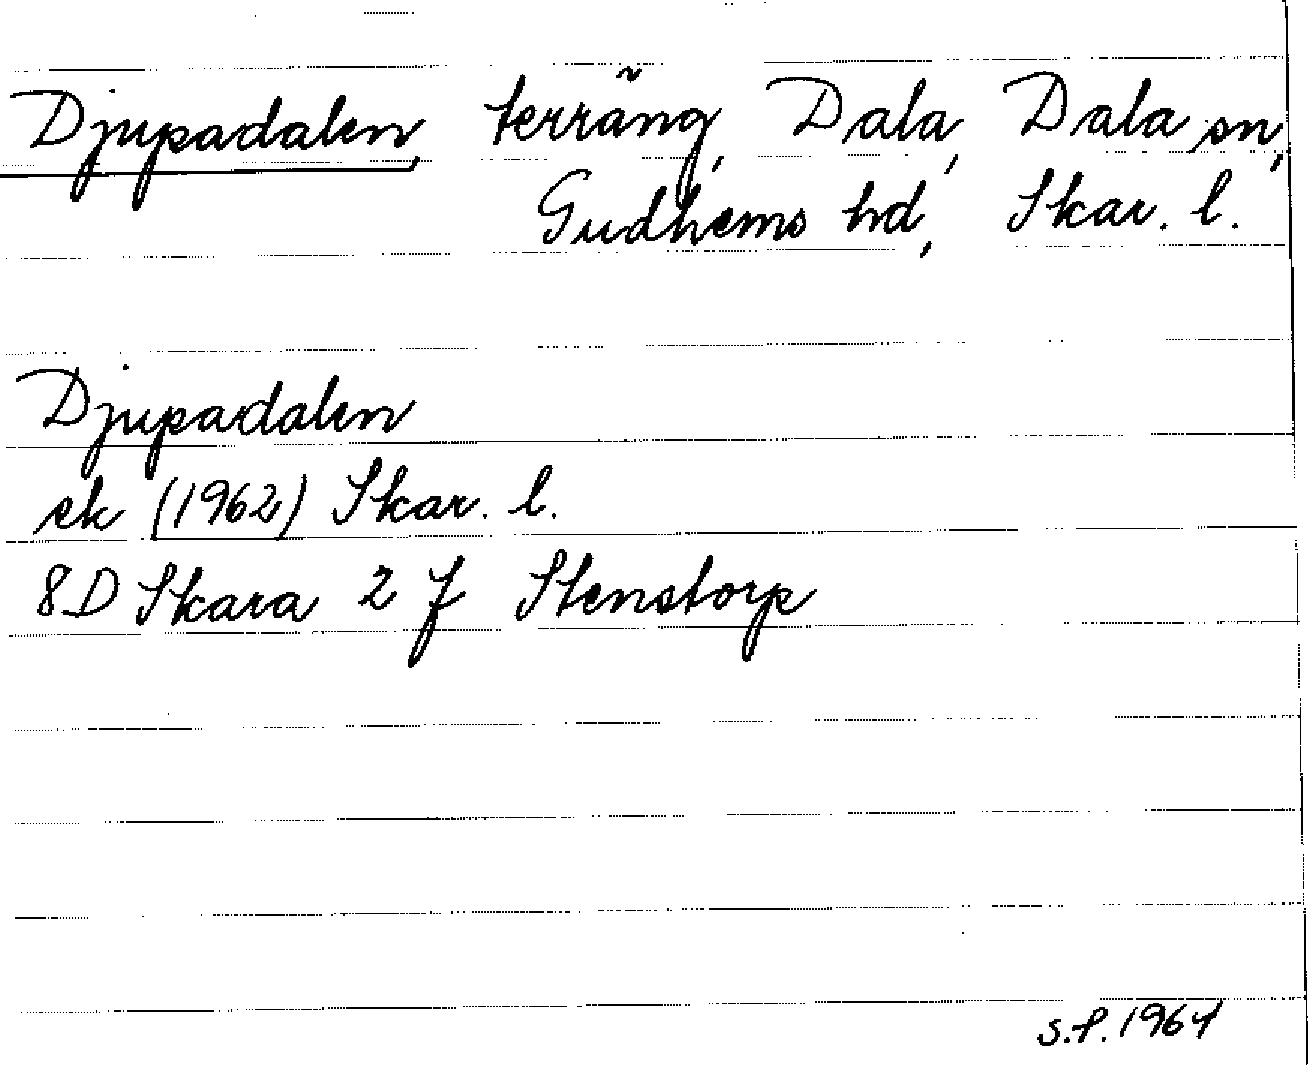 Djupadalen, terräng, Dala, Dala sn,
Gudhems hd, Skar. l.
Djupadalen
ek (1962) Skar. l.
8D Skara 2 f Stenstorp
S.F. 1964